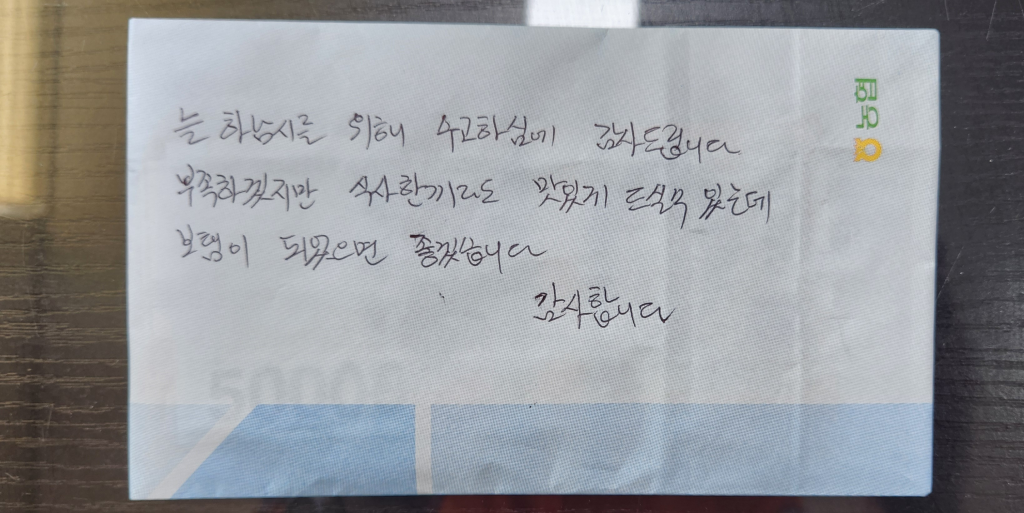 늘 하남시를 위해 수고하심에 감사드립니다
부족하겠지만 식사한끼라도 맛있게 드실수 있는데
보탬이 되었으면 좋겠습니다
감사합니다
농협
50000